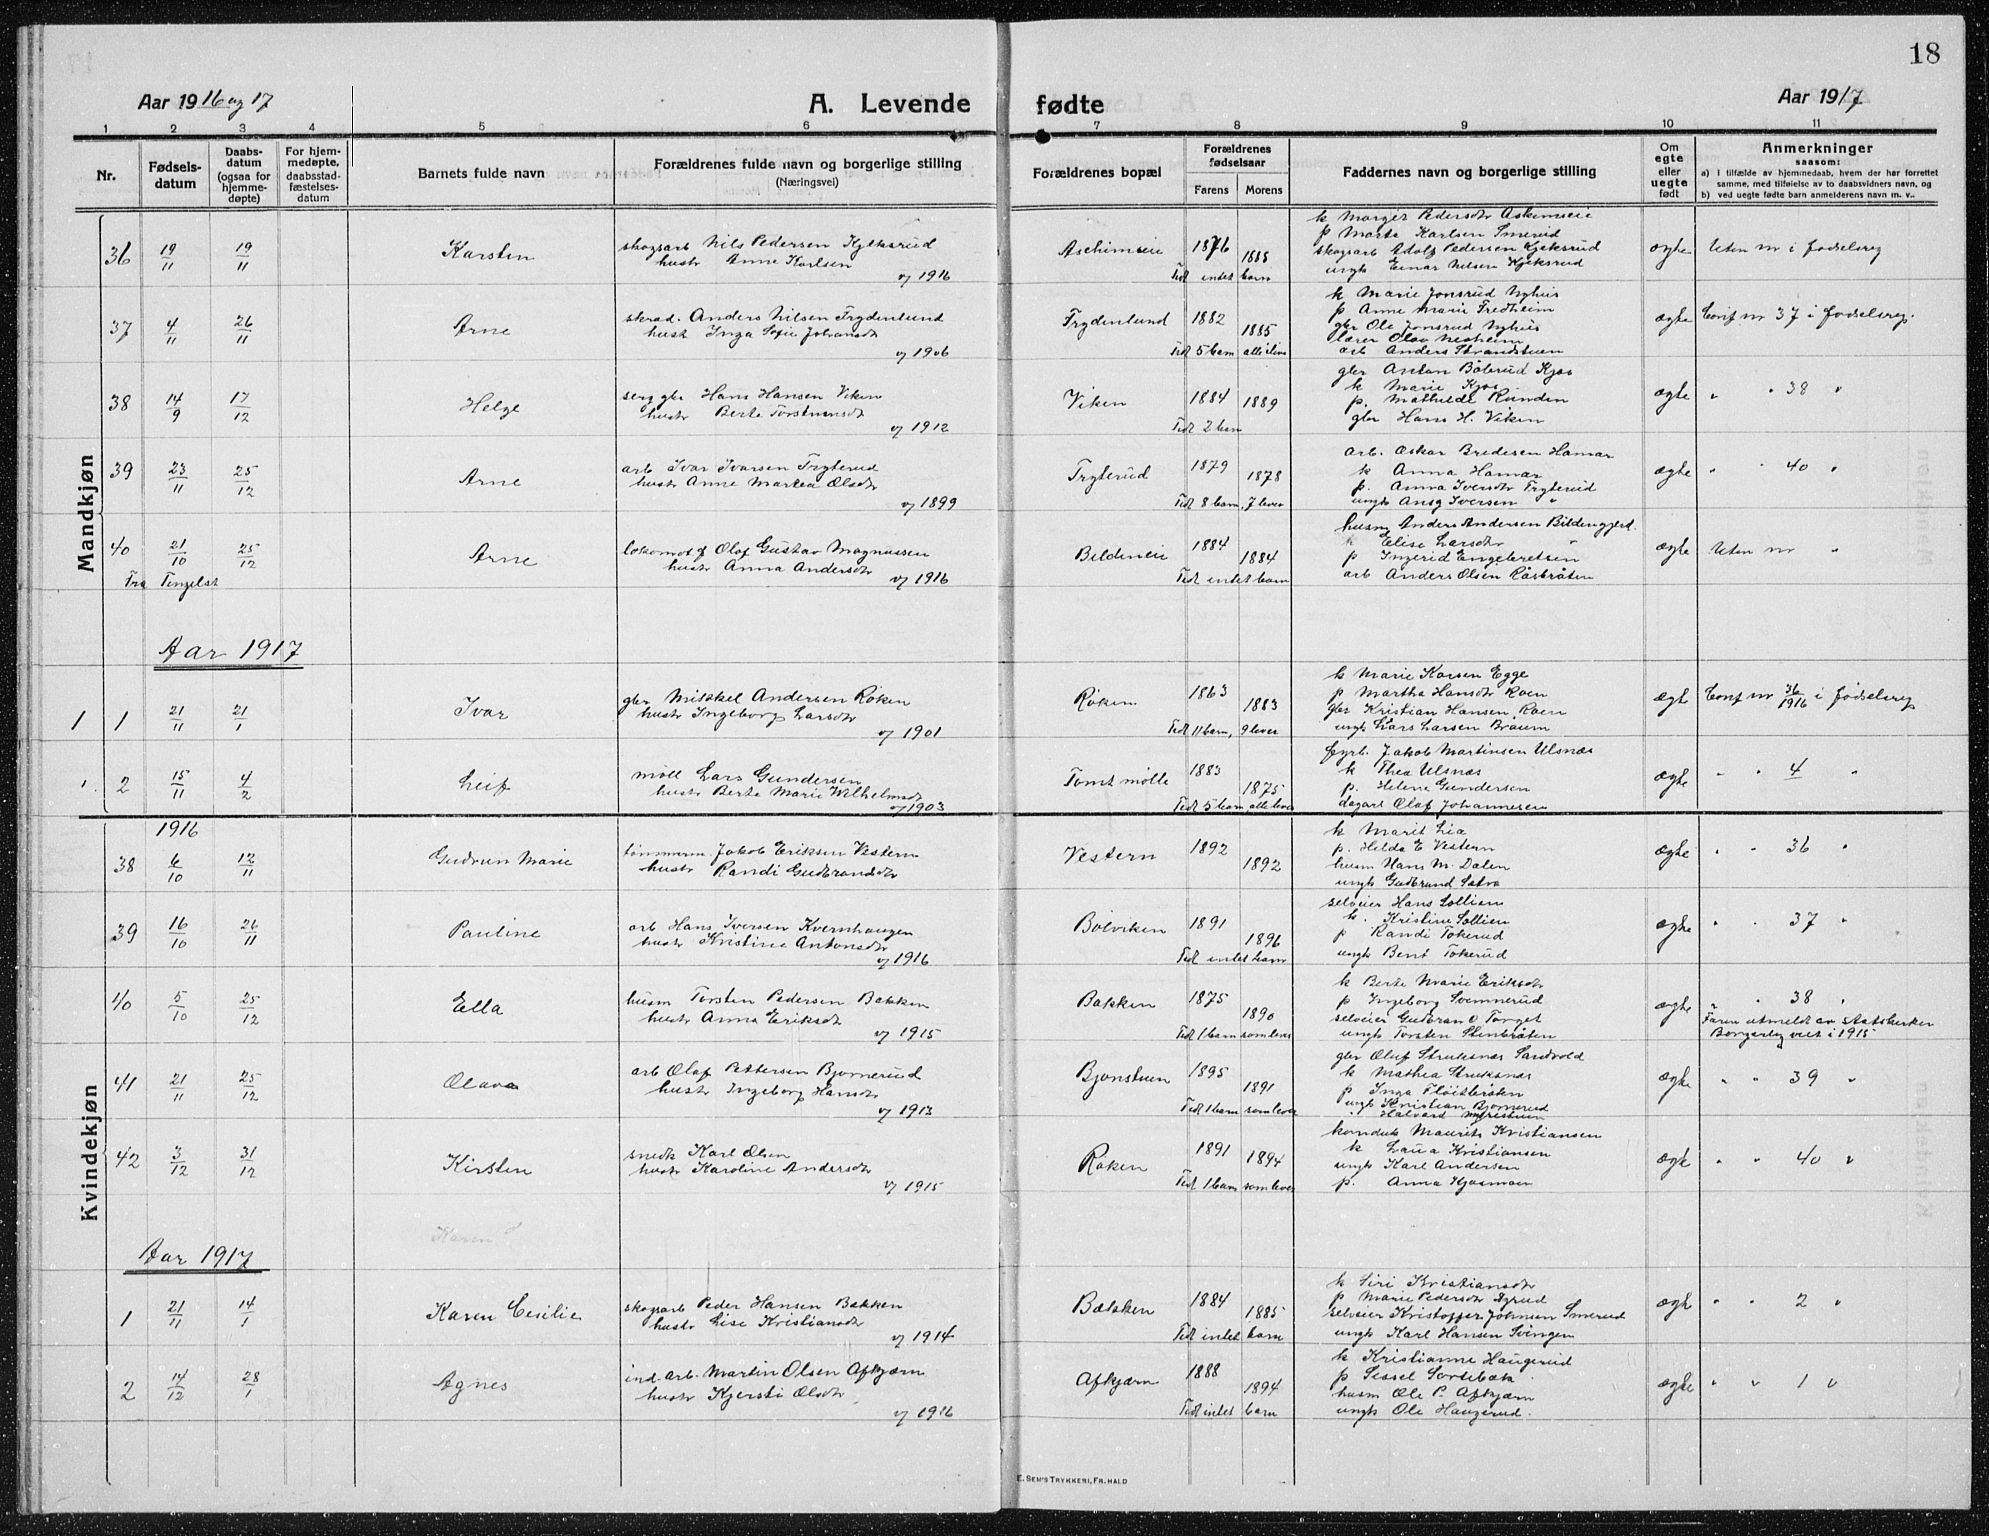 18
Aar 1916 og 17
A. Levende fødte
Aar 1917
1 2 3 4 5 6 7 8 9 10 11
Nr.
Fødsels-datum
Daabs-datum (ogsaa for hjemme-døpte)
For hjem-medøpte, daabsstad-fæstelses-datum
Barnets fulde navn
Forældrenes fulde navn og borgerlige stilling
(Næringsvei)
Forældrenes bopæl
Forældrenes fødselsaar
Farens Morens
Faddernes navn og borgerlige stilling
Om egte eller uegte født
Anmerkninger
saasom:
a) I tilfælde av hjemmedaab, hvem der har forrettet samme, med tilføielse av to daabsvidners navn, og
b) ved uegte fødte barn anmelderens navn m. v..
Mandkjøn
36 19/11 19/11 Karsten
skogsarb Nils Pedersen Kjeksrud
hustr Anne Karlsen
vj 1916
Aschimeie 1876 1888
Tidl intet barn
k Margit Pedersdtr Askimseie
p Marta Karlsen Smerud
skogsarb Adolf Pedersen Kjeksrud
ungk Einar Nilsen Kjeksrud
ægte Uten nr i fødselsreg
37 4/11 26/11 Arne
skræd. Anders Nilsen Frydenlund
hustr Inga Sofie Johansdtr
vj 1906
Frydenlund 1882 1885
Tidl 5 barn alle i live
k Marie Jonsrud Nyhus
p Anne Marie Fredheim
gbr Ole Jonsrud Nyhus
lærer Olav Nesheim
arb Anders Strandstuen
ægte Conf nr 37 i fødselsreg.
38 14/9 17/12 Helge
gbr Hans Hansen Viken
hustr Berte Torstensdtr
vj 1912
Viken 1884 1889
Tidl 2 barn
gbr Anton Bölerud Kjos
k Marie Kjos
p. Mathilde Runden
gbr Hans H. Viken
ægte " " 38 "
39 23/11 25/12 Arne
arb Ivar Ivarsen Fryterud
hustr Anne Martea Olsdtr
vj 1899
Fryterud 1879 1878
Tidl 8 barn, 7 lever
arb. Oskar Bredesen Hamar
k Anna Hamar
p. Anna Iversdtr Fryterud
ungk Ansg Iversen "
ægte " " 40 "
40 21/10 25/12 Arne
Fra Tingelst
lokomotf Olaf Gustav Magnussen
hustr Anna Andersdtr
vj 1916
Bildeneie 1884 1884
Tidl intet barn
husm Anders Andersen Bildengjert.
k Elise Larsdtr "
p Ingerid Engebretsen
arb Anders Olsen Råsbråten
ægte Uten nr "
Aar 1917
1 1 21/11 21/1 Ivar
gbr Mikkel Andersen Røken
hustr Ingeborg Larsdtr
vj 1901
Røken 1863 1883
Tidl 11 barn, 9 lever
k Marie Karsen Egge
p Martha Hansdtr Roen
gbr Kristian Hansen Roen
ungk Lars Larsen Braum
ægte Conf nr 36/1916 i fødselsreg
1. 2 15/11 4/2 Leif
möll Lars Gundersen
hustr Berte Marie Wilhelmsdtr
vj 1903
Tomt mølle 1883 1875
Tidl 5 barn alle lever
fyrb. Jakob Martinsen Ulsnæs
k Thea Ulsnæs
p. Helene Gundersen
dagarb Olaf Johannesen
ægte " " 4 "
Kvindekjøn
1916
38 6/10 12/11 Gudrun Marie
tömmerm. Jakob Eriksen Vestern
hustr Randi Gudbrandsdtr
Vestern 1892 1892
k Marit Lia
p. Helda E Vestern
husm Hans M. Dalen
ungk Gudbrand Sætra
ægte " " 36 "
39 16/10 26/11 Pauline
arb Hans Iversen Kvernhaugen
hustr Kristine Antonsdtr
vj 1916
Bölviken 1891 1896
Tidl intet barn
selveier Hans Sollien
k. Kristine Sollien
p Randi Tokerud
ungk Bent Tokerud
ægte " " 37 "
40 5/10 25/12 Ella
husm Torsten Pedersen Bakken
hustr Anna Eriksdtr
vj 1915
Bakken 1875 1890
Tidl 1 barn som lever
k Berte Marie Eriksdtr
p Ingeborg Svennerud
selveier Gudbran O Torget
ungk Torsten Stenbråten
ægte " 38 "
Faren utmeldt av Statskirken
Borgerlig viet i 1915
41 21/11 25/12 Olava
arb Olaf Pettersen Bjørnerud
hustr Ingeborg Hansdtr
vj 1913
Bjonstuen 1895 1891
Tidl 1 barn som lever
gbr Oluf Struksnæs Sandvold
k Mathea Struksnæs
p Inga Flöitbråten
ungk Kristian Bjørnerud
" Halvard Myrestuen
ægte " " 39 "
42 3/12 31/12 Kirsten
snedk Karl Olsen
hustr Karoline Andersdtr
vj 1915
Røken 1891 1894
Tidl 1 barn som lever
konduk Maurits Kristiansen
k Laua Kristiansen
ungk Karl Andersen
p. Anna Kjosmoen
ægte " " 40 "
Karen
Aar 1917
1 21/11 14/1 Karen Cecilie
skogsarb Peder Hansen Bakken
hustr Lise Kristiansdtr
vj 1914
Bakken 1884 1885
Tidl intet barn
k Siri Kristiansdtr
p Marie Pedersdtr Byrud
selveier Kristoffer Johnsen Smerud
ungk Karl Hansen Svingen
ægte " " 2 "
2 14/12 28/1 Agnes
ind. arb. Martin Olsen Afkjærn
hustr Kjersti Olsdtr
vj 1916
Afkjærn 1888 1894
Tidl intet barn
k Kristianne Haugerud
p Sissel Sortebæk
husm Ole P. Afkjærn
ungk Ole Haugerud.
ægte " " 1 "
E. SEM'S TRYKKERI, FR. HALD